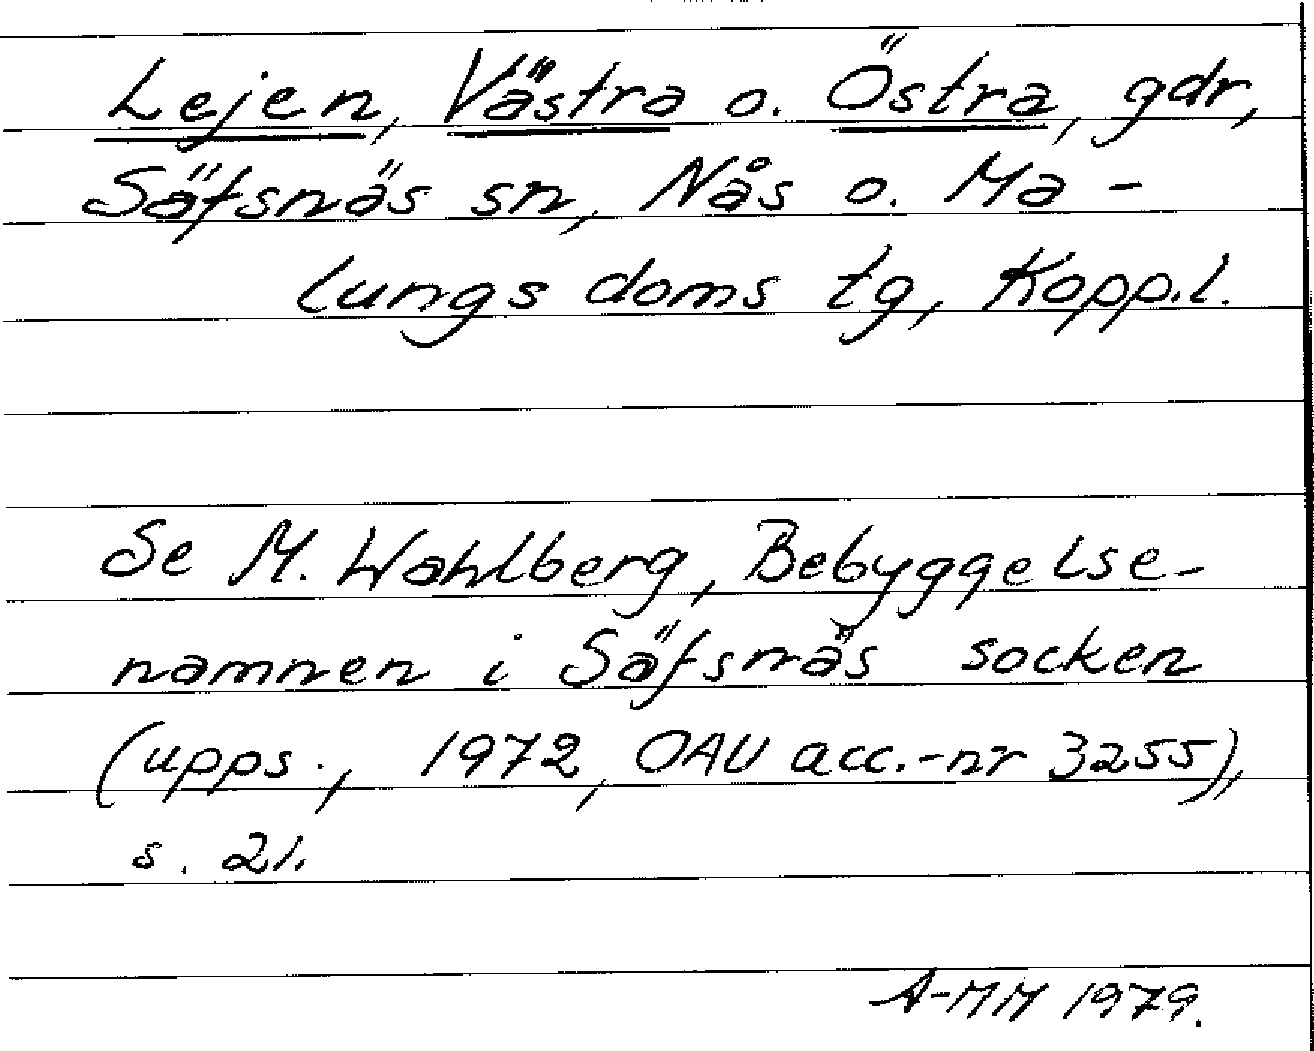 Lejen, Västra o. Östra, gdr,
Säfsnäs sn, Nås o. Ma-
lungs doms tg, Kopp.l.
Se M. Wahlberg, Bebyggelse-
namnen i Säfsnäs socken
(upps., 1972, OAU acc.-nr 3255),
s. 21.
A-MM 1979.